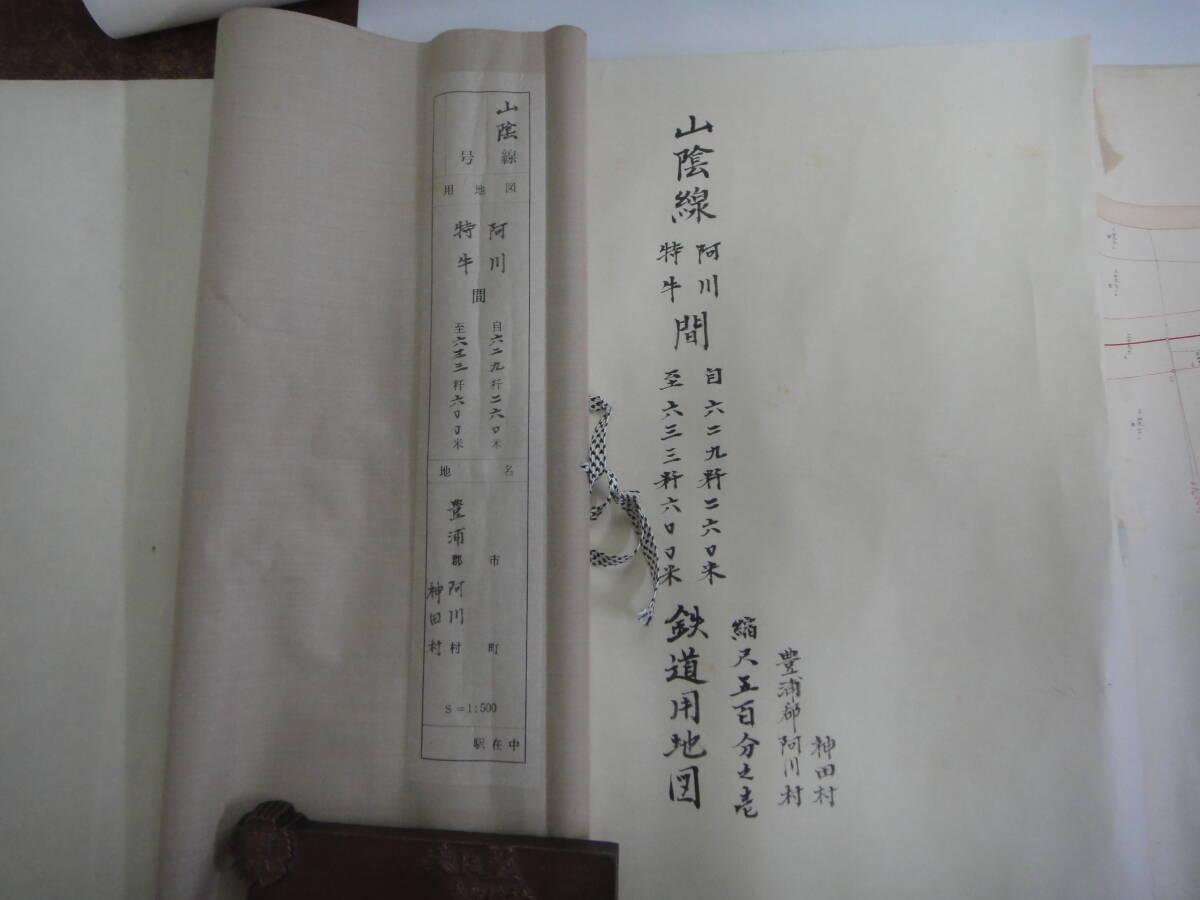 山陰線
号
用地図
阿川
特牛
間
自六二九粁二六〇米
至六三三粁六〇〇米
地名
豊浦郡市
阿川村町
神田村
S=1:500
中在駅
山陰線
阿川
特牛
間
自六二九粁二六〇米
至六三三粁六〇〇米
鉄道用地図
縮尺五百分之壱
豊浦郡阿川村
神田村